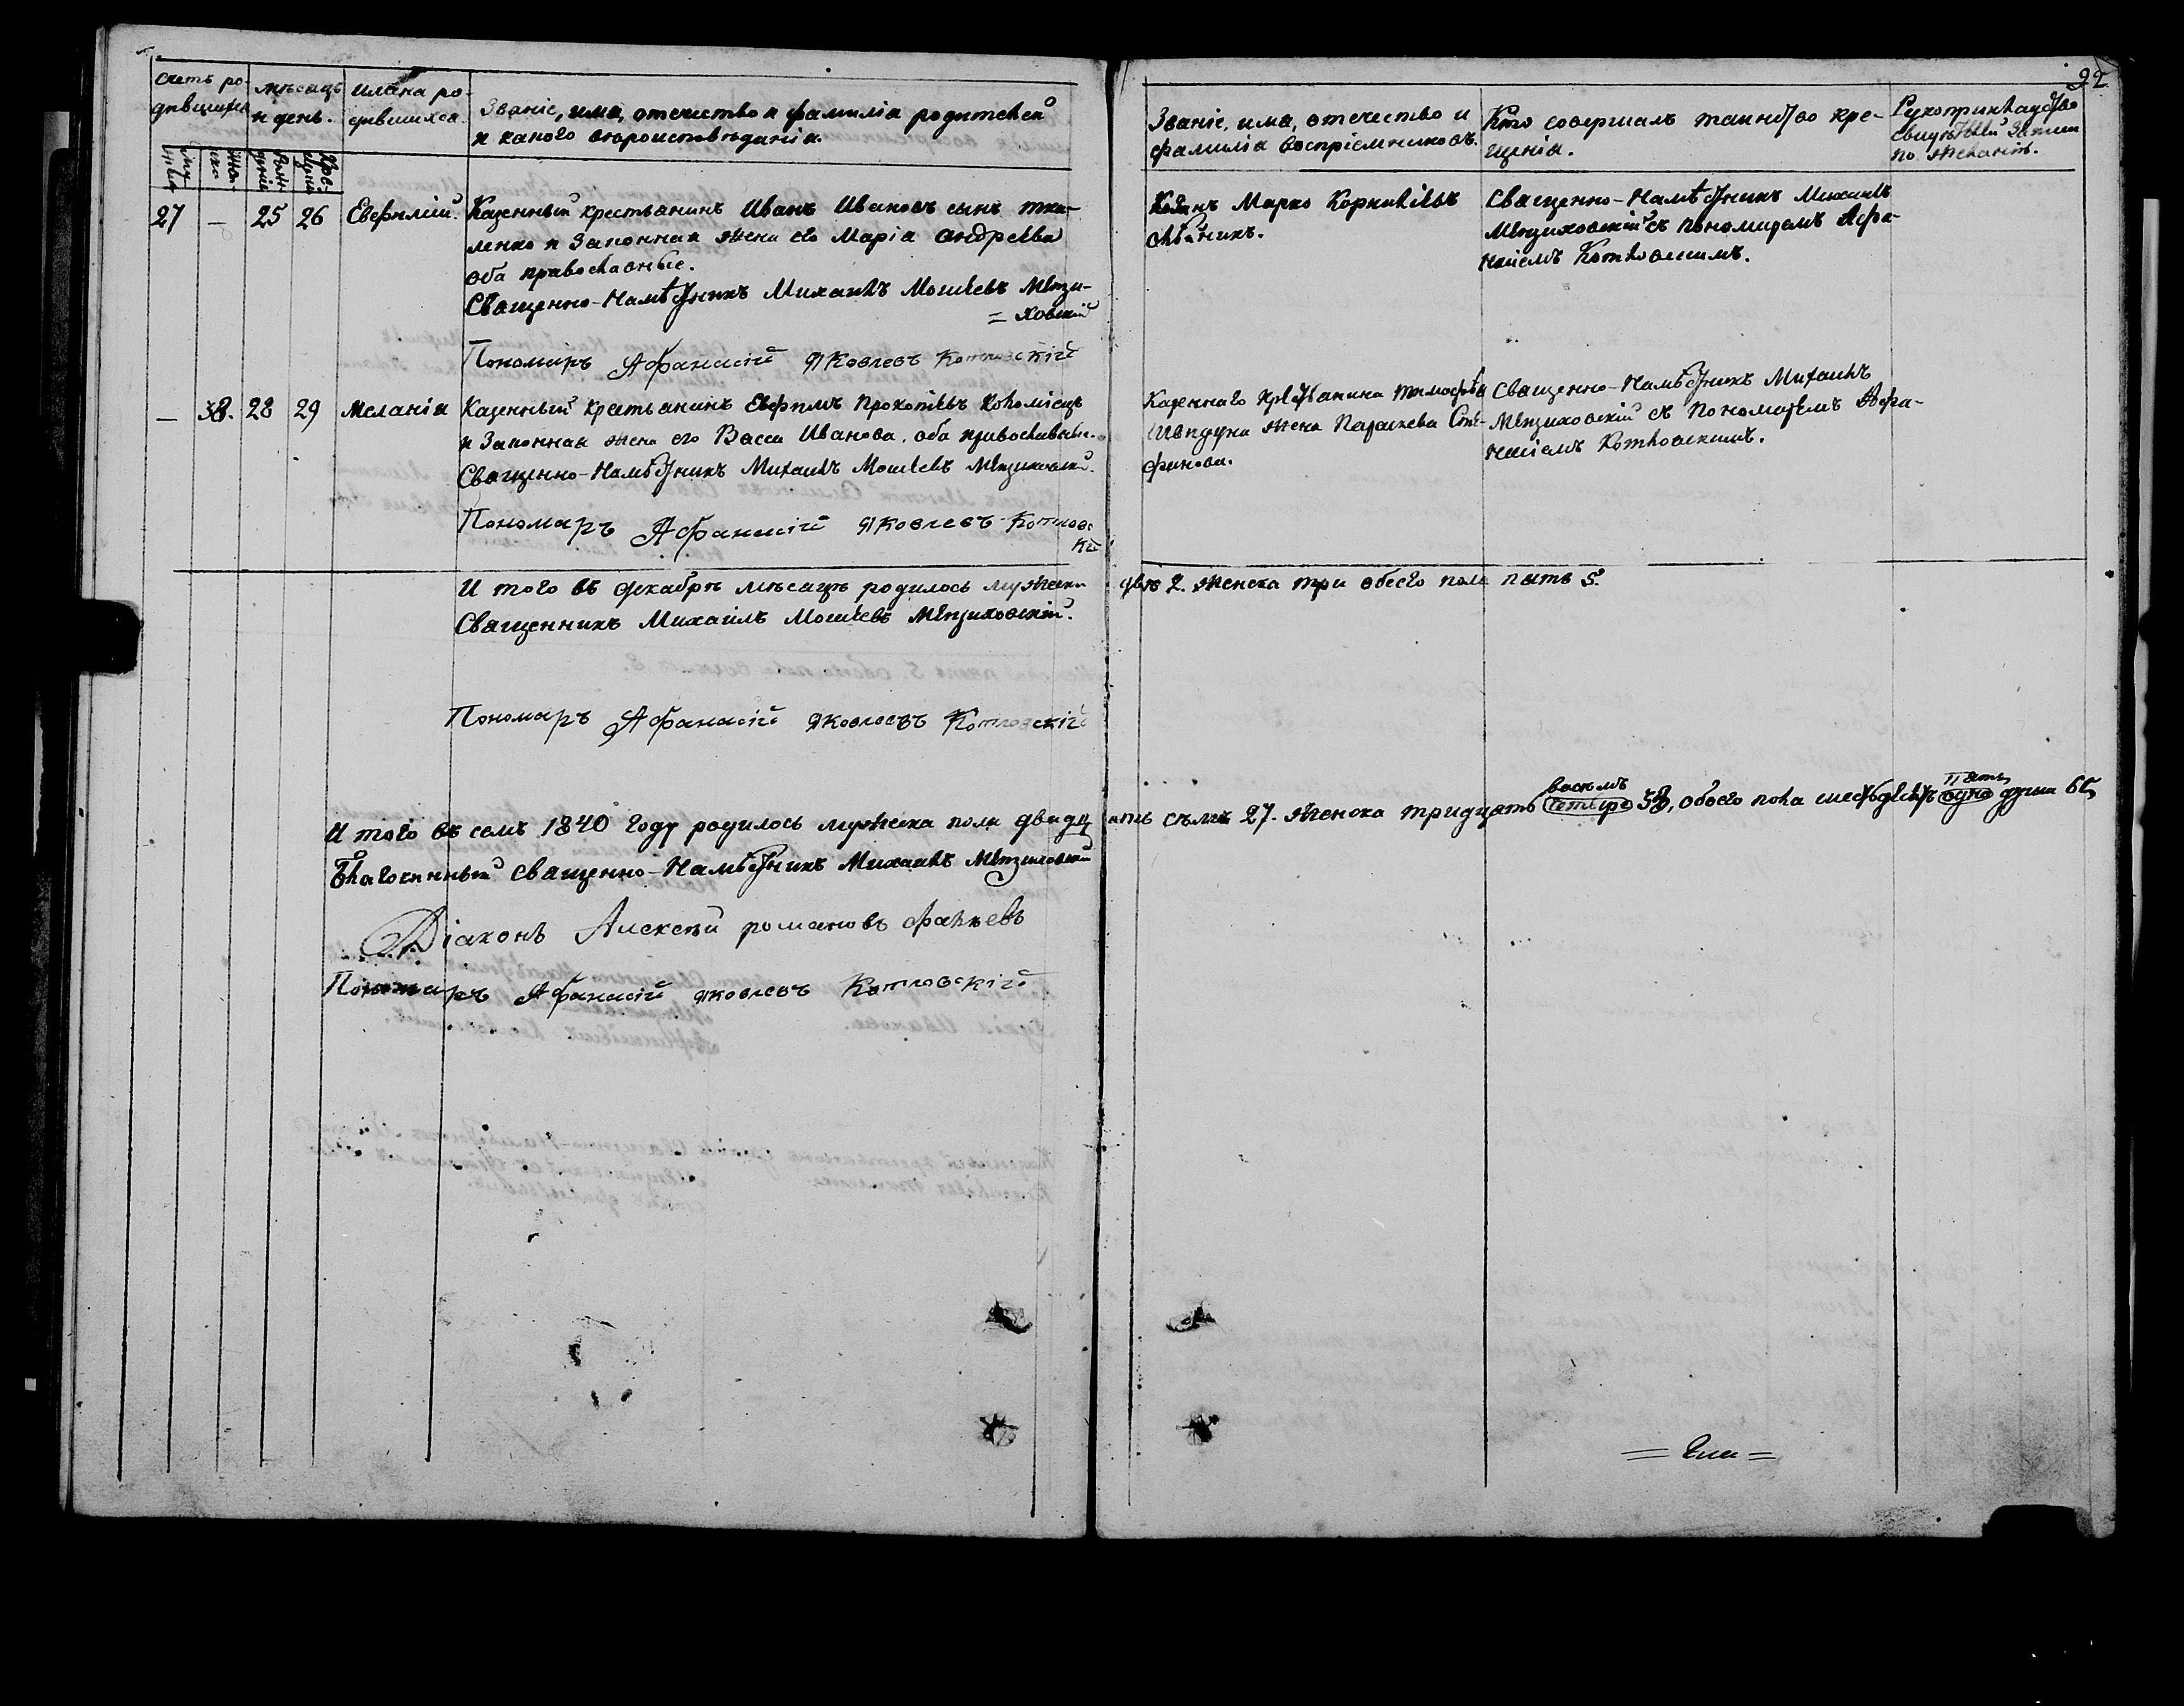 22
Счетъ ро-
дившихся
мѣсяцъ
и день.
имена ро-
дившихся.
Званіе, имя, отечество и фамилія родителей
и какого вѣроисповѣданія.
Званіе, имя, отечество и
фамилія воспріемниковъ.
Кто совершалъ таинство кре-
щенія.
Рукоприкладство
свидѣтелей записи
по желанію.
27 — 25 26 Евфимій.
Казенный крестьянинъ Иванъ Ивановъ сынъ Тка-
ленко и законная жена его Марія Андреева
оба православные.
Священно-Намѣстникъ Михаилъ Мосіевъ
= ховскій
Пономаръ Афанасій Яковлевъ Котловскій
Марко Корніліевъ
Священно-Намѣстникъ Михаилъ
съ пономаремъ Афа-
насіемъ Котловскимъ.
— 38. 28 29 Меланія
Казенный крестьянинъ Евфимъ Прокопіевъ Коломіецъ
и законная жена его Васса Иванова, оба православные.
Священно-Намѣстникъ Михаилъ Мосіевъ
Пономаръ Афанасій Яковлевъ Котловс
кій
Казеннаго крестьянина Тимофея
жена Параскева
Священно-Намѣстникъ Михаилъ
съ пономаремъ Афа-
насіемъ Котловскимъ.
И того въ декабрѣ мѣсяцѣ родилось мужеска двѣ 2. женска три обоего пола пять 5.
Священникъ Михаилъ Мосіевъ
Пономаръ Афанасій Яковлевъ Котловскій
восемъ
пять
И того въ семъ 1840 году родилось мужеска пола двадцать съмъ 27. женска тридцать четыре 38, обоего пола шестьдесятъ одна душа 65
Благочинный Священно-Намѣстникъ Михаилъ
Діаконъ Алексѣй Романовъ
Пономаръ Афанасій Яковлевъ Котловскій